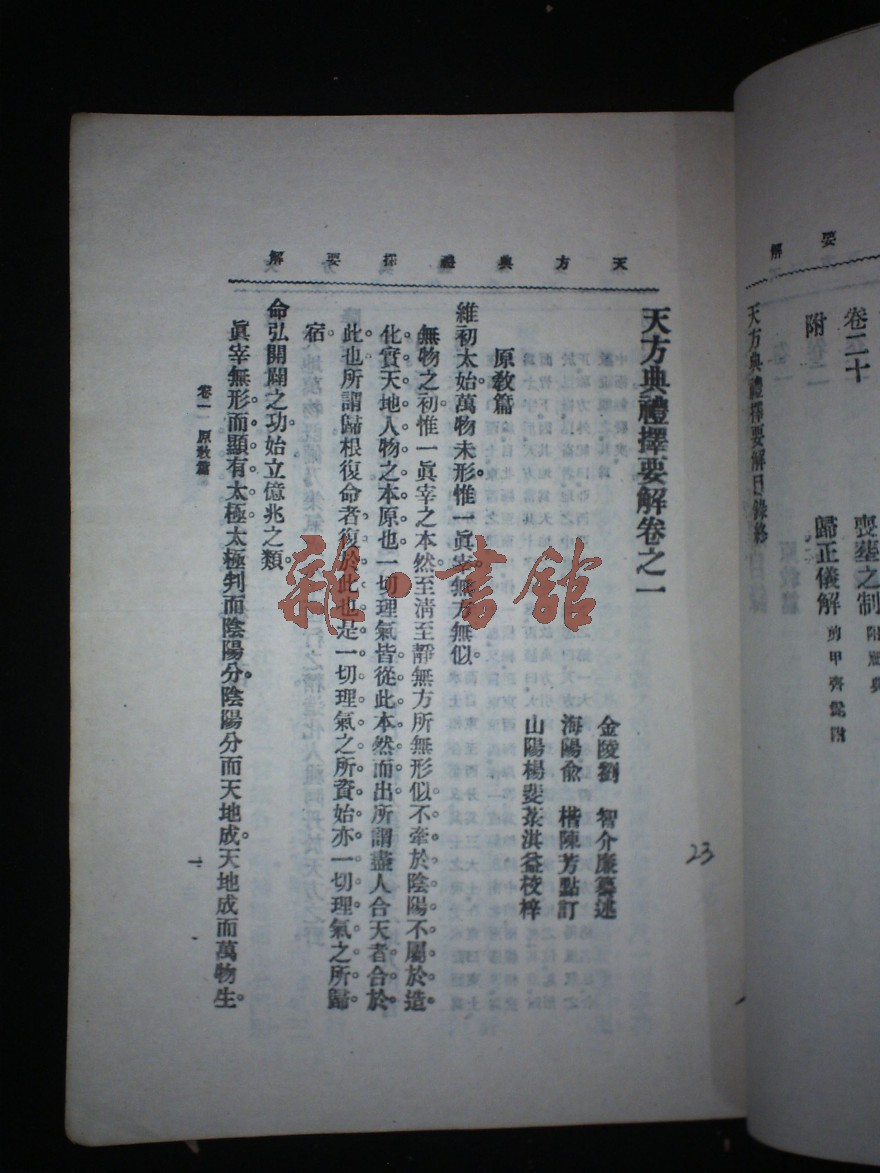 要解
卷二十
喪葬之制
附
歸正儀解 剪甲齊髭附
天方典禮擇要解目錄終
天方典禮擇要解
天方典禮擇要解卷之一
金陵劉 智介廉纂述
海陽俞 楷陳芳點訂
山陽楊斐菉淇益校梓
原教篇
維初太始萬物未形惟一眞宰無方無似。
無物之初惟一眞宰之本然至清至靜無方所無形似不牽於陰陽不屬於造
化實天地人物之本原也一切理氣皆從此本然而出所謂盡人合天者合於
此也所謂歸根復命者復於此也是一切理氣之所資始亦一切理氣之所歸
宿。
命弘開闢之功始立億兆之類。
眞宰無形而顯有太極太極判而陰陽分。陰陽分而天地成。天地成而萬物生。
卷一 原教篇
一
23
雜·書館